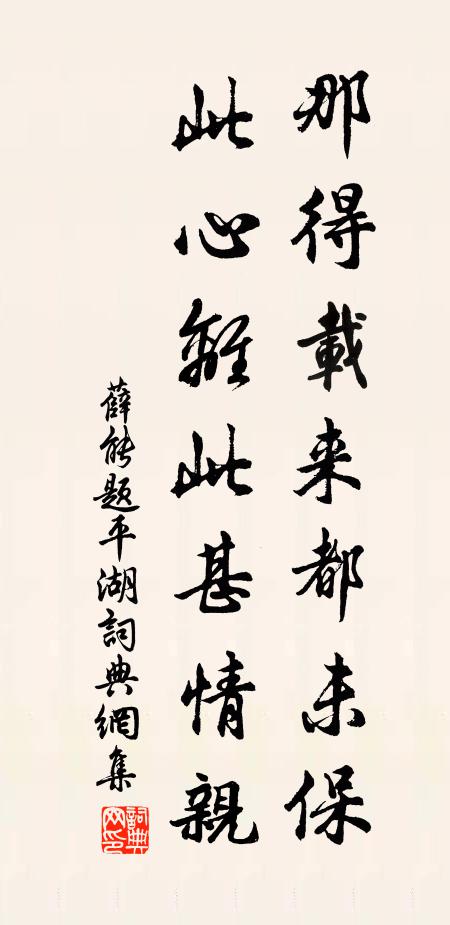 那得載来都未保
此心離此甚情親
薛能題平湖詞典網集
詞典
网印